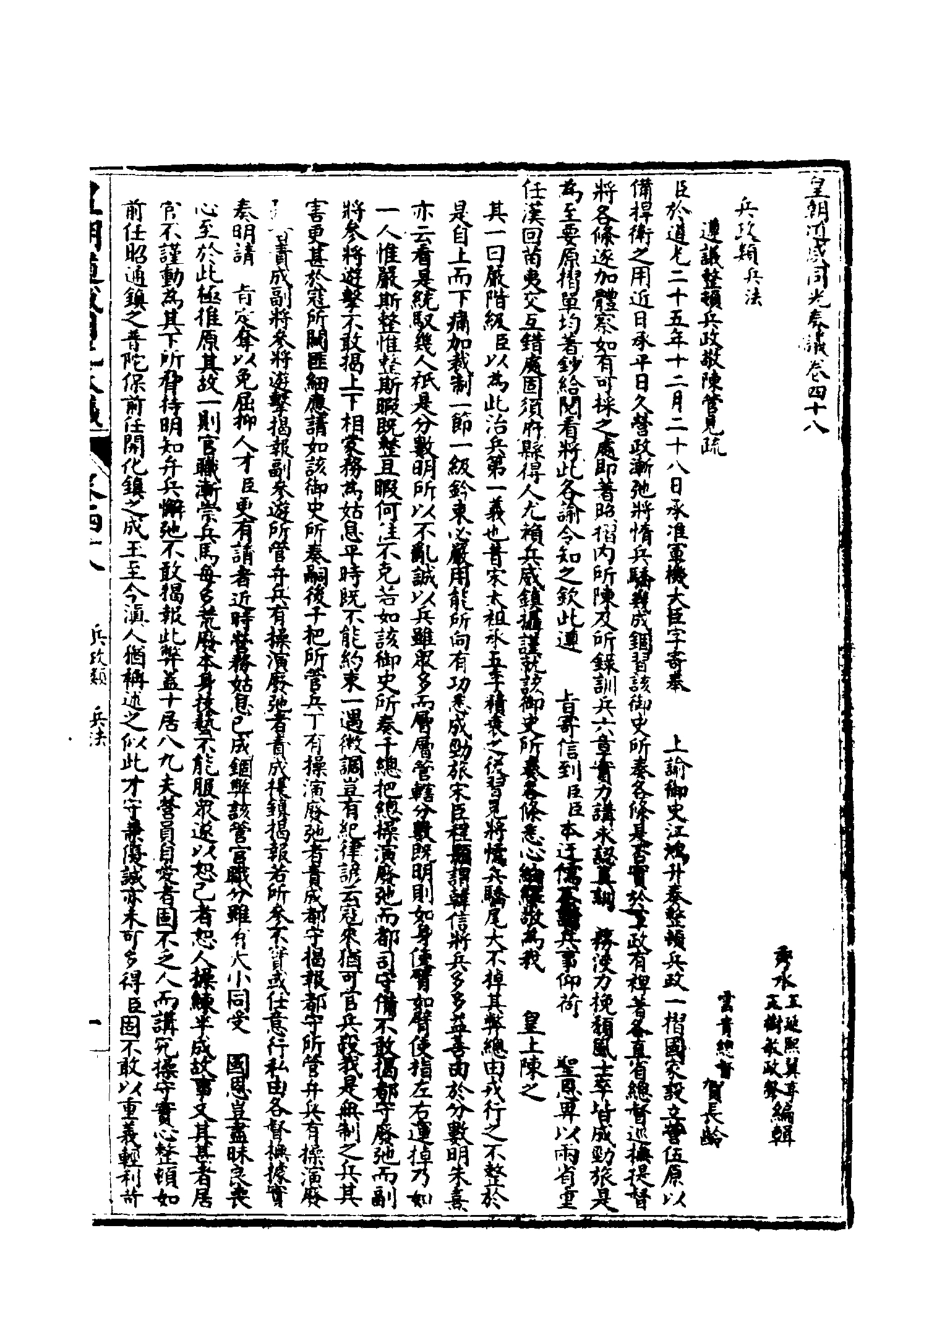 皇朝道咸同光奏議卷四十八
秀水 王延熙翼亭 王樹敏政聲 編輯
兵政類 兵法
遵議整頓兵政敬陳管見疏 雲貴總督賀長齡
臣於道光二十五年十二月二十八日承准軍機大臣字寄奉 上諭御史江鴻升奏整頓兵政一摺國家設立營伍原以
備捍衛之用近日承平日久營政漸弛將惰兵驕幾成錮習該御史所奏各條是否實於戎政有裨著各直省總督巡撫提督
將各條逐加體察如有可採之處即著照摺內所陳及所錄訓兵六章實力講求認真訓 務使力挽頹風士卒皆成勁旅是
為至要原摺單均著鈔給閱看將此各諭令知之欽此遵 旨寄信到臣臣本迂儒 兵事仰荷 聖恩畀以兩省重
任漢回苗夷交互錯處固須府縣得人尤賴兵威鎮攝謹就該御史所奏各條悉心紬繹敬為我 皇上陳之
其一曰嚴階級臣以為此治兵第一義也昔宋太祖承五季積衰之後習見將惰兵驕尾大不掉其弊總由戎行之不整於
是自上而下痛加裁制一節一級鈐束必嚴用能所向有功悉成勁旅宋臣程顥謂韓信將兵多多益善由於分數明朱熹
亦云看是統馭幾人祇是分數明所以不亂誠以兵雖眾多而層層管轄分數既明則如身使臂如臂使指左右運掉乃如
一人惟嚴斯整惟整斯暇既整且暇何往不克若如該御史所奏千總把總操演廢弛而都司守備不敢揭都守廢弛而副
將參將遊擊不敢揭上下相蒙務為姑息平時既不能約束一遇徵調豈有紀律諺云寇來猶可官兵殺我是無制之兵其
害更甚於寇所關匪細應請如該御史所奏嗣後千把所管兵丁有操演廢弛者責成都守揭報都守所管弁兵有操演廢
弛者責成副將參將遊擊揭報副參遊所管弁兵有操演廢弛者責成提鎮揭報若所參不實或任意行私由各督撫據實
奏明請 旨定奪以免屈抑人才臣更有請者近時營務姑息已成錮弊該管官職分雖有大小同受 國恩豈盡昧良喪
心至於此極推原其故一則官職漸崇兵馬每多荒廢本身技藝不能服眾遂以恕己者恕人操練半成故事又其甚者居
官不謹動為其下所脅持明知弁兵懈弛不敢揭報此弊蓋十居八九夫營員自愛者固不乏人而講究操守實心整頓如
前任昭通鎮之普陀保前任開化鎮之成玉至今滇人猶稱述之似此才守兼優誠亦未可多得臣固不敢以重義輕利苛
兵政類 兵法
一